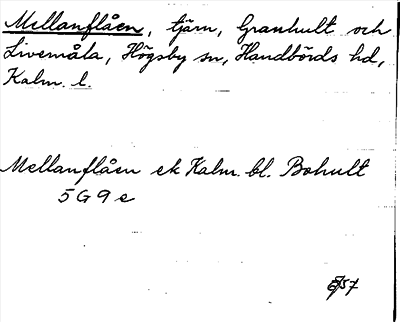 Mellanflåen, tjärn, Granhult och
Livemåla, Högsby sn, Handbörds hd,
Kalm. l.
Mellanflåen ek Kalm. bl. Bohult
5 G 9 e
57